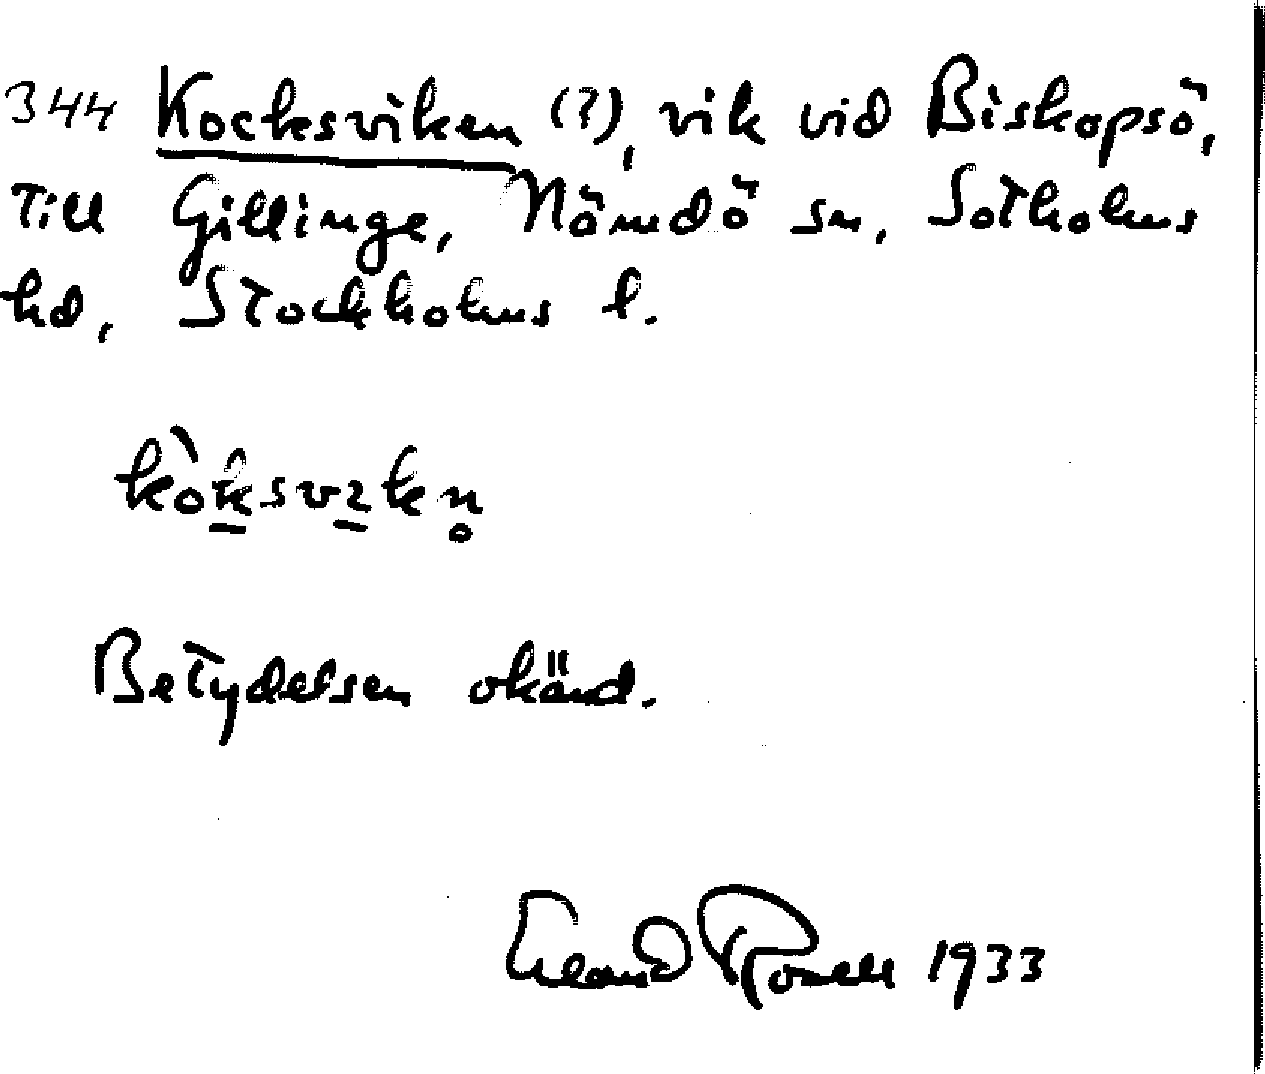 344 Kocksviken (?), vik vid Biskopsö,
Till Gillinge, Nämdö sn, Sotholms
hd, Stockholms l.
kòksvikn̥
Betydelsen okänd.
Erland Rosell 1933